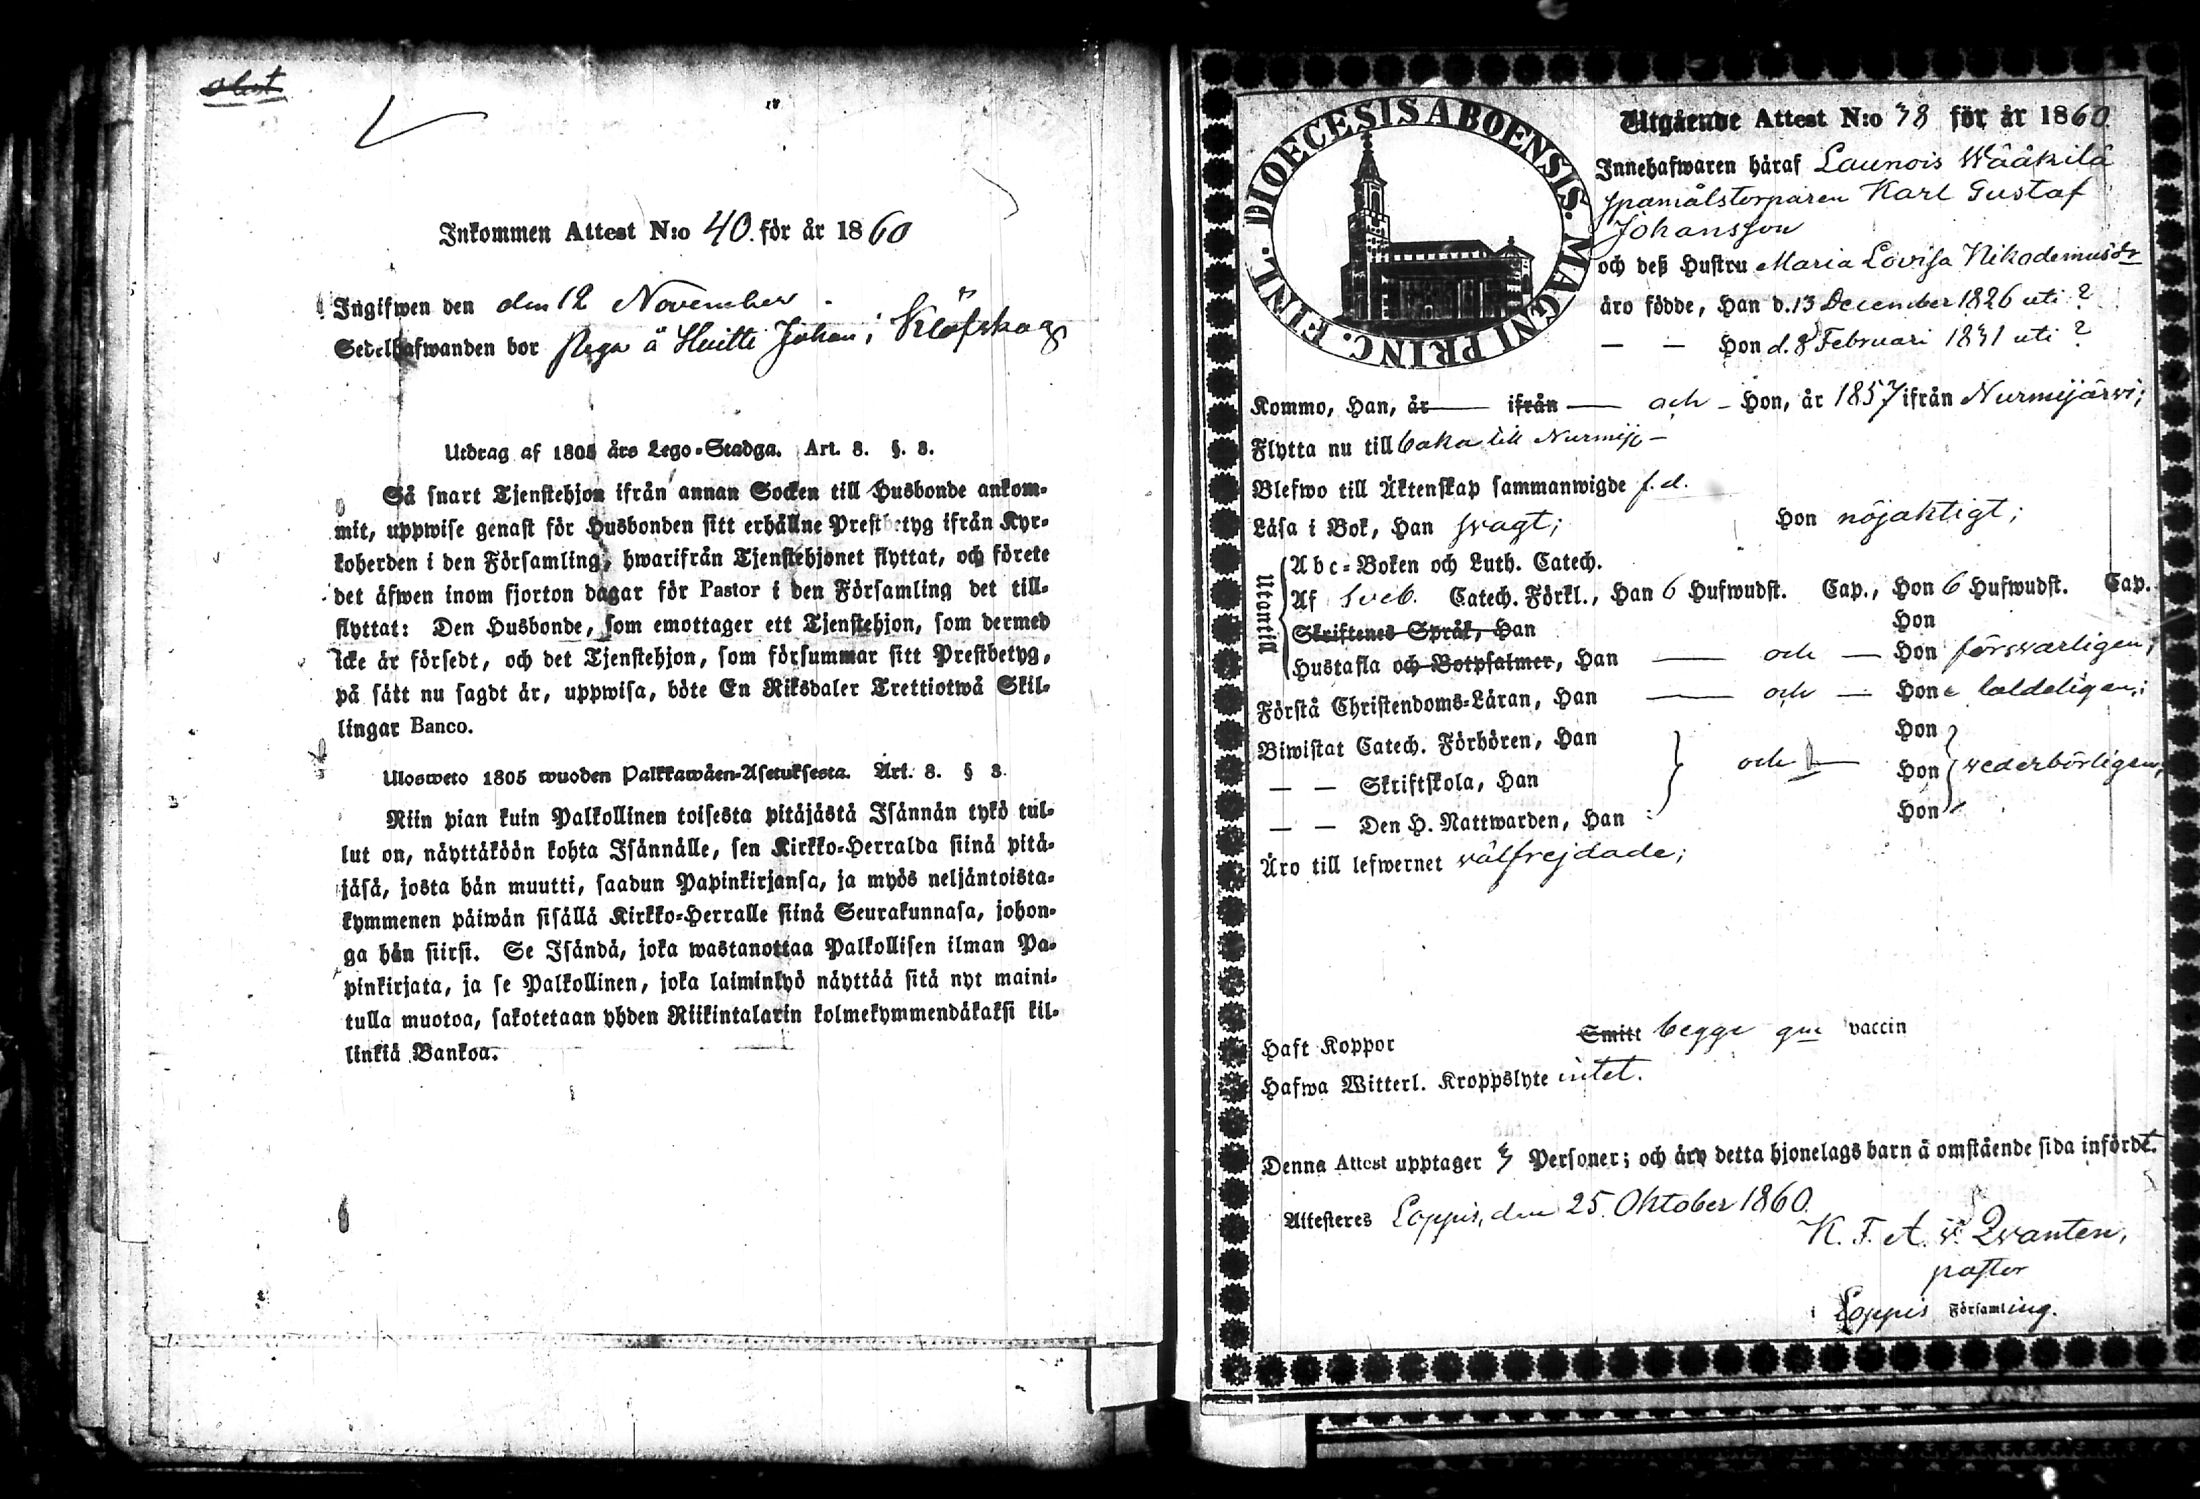 Inkommen Attest N:o 40. för år 1860
Ingifwen den den 12 November
Sedelhafwanden bor Piga å Huitti Johan i Klöfskog
Utdrag af 1805 års Lego-Stadga. Art. 8. §. 8.
Så snart Tjenstehjon ifrån annan Socken till Husbonde ankom-
mit, uppwise genast för Husbonden sitt erhållne Prestbetyg ifrån Kyr-
koherden i den Församling, hwarifrån Tjenstehjonet flyttat, och förete
det äfwen inom fjorton dagar för Pastor i den Församling det till-
flyttat: Den Husbonde, som emottager ett Tjenstehjon, som dermed
icke är försedt, och det Tjenstehjon, som försummar sitt Prestbetyg,
på sätt nu sagdt är, uppwisa, böte En Riksdaler Trettiotwå Skil-
lingar Banco.
Ulosweto 1805 wuoden Palkkawäen-Asetuksesta. Art. 8. § 8.
Niin pian kuin Palkollinen toisesta pitäjästä Isännän tykö tul-
lut on, näyttäköön kohta Isännälle, sen Kirkko-Herralda siinä pitä-
jäsä, josta hän muutti, saadun Papinkirjansa, ja myös neljäntoista-
kymmenen päiwän sisällä Kirkko-Herralle siinä Seurakunnasa, johon-
ga hän siirsi. Se Isändä, joka wastanottaa Palkollisen ilman Pa-
pinkirjata, ja se Palkollinen, joka laiminlyö näyttää sitä nyt maini-
tulla muotoa, sakotetaan yhden Riikintalarin kolmekymmendäkaksi kil-
linkiä Bankoa.
DIOECESIS ABOENSIS. MAGNI PRINC. FINL.
Utgående Attest N:o 78 för år 1860
Innehafwaren häraf Launois Wääkilä
spanmålstorparen Karl Gustaf
Johansson
och deß Hustru Maria Lovisa Nikodemusdr
äro födde, Han d. 13 December 1826 uti ?
— — Hon d. 8 Februari 1831 uti ?
Kommo, Han, år — ifrån — och – Hon, år 1857 ifrån Nurmijärvi;
Flytta nu till baka till Nurmij. –
Blefwo till Äktenskap sammanwigde f. d.
Läsa i Bok, Han svagt; Hon nöjaktigt;
Utantill
Abc-Boken och Luth. Catech.
Af Sveb. Catech. Förkl., Han 6 Hufwudst. Cap., Hon 6 Hufwudst. Cap.
Skriftenes Språk, Han Hon
Hustafla och Botpsalmer, Han — och — Hon försvarligen;
Förstå Christendoms-Läran, Han — och — Hon
Biwistat Catech. Förhören, Han Hon
— — Skriftskola, Han och — Hon vederbörligen;
— — Den H. Nattwarden, Han Hon
Äro till lefwernet välfrejdade;
Haft Koppor Smitt begge gm vaccin
Hafwa Witterl. Kroppslyte intet.
Denna Attest upptager 3 Personer; och äro detta hjonelags barn å omstående sida infördt.
Attesteres Loppis, den 25. Oktober 1860.
K. F. A. v. Qvanten,
pastor
i Loppis Församling.